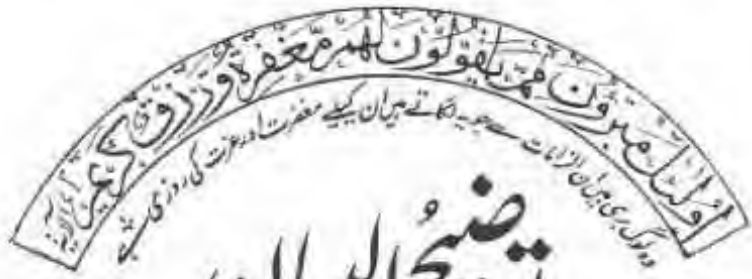 اولئك مبرءون مما يقولون لهم مغفرة ورزق كريم الآية
وہ لوگ بری ہیں ان الزامات سے جو یہ لگاتے ہیں ان کیلئے مغفرت اور عزت کی روزی ہے